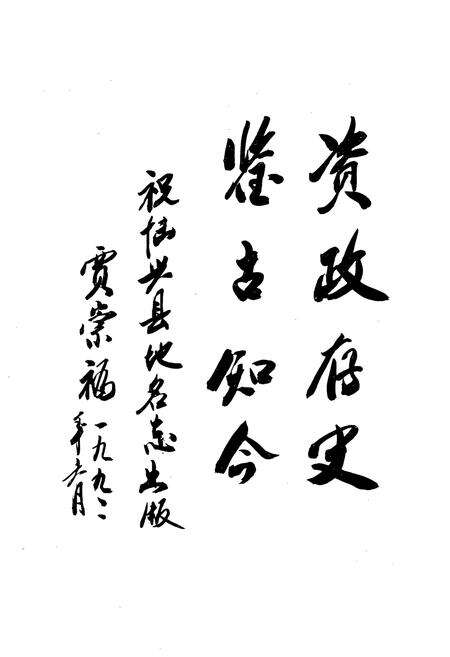 资政存史
鉴古知今
祝恤兴县地名志出版
贾崇福
一九九二
年六月